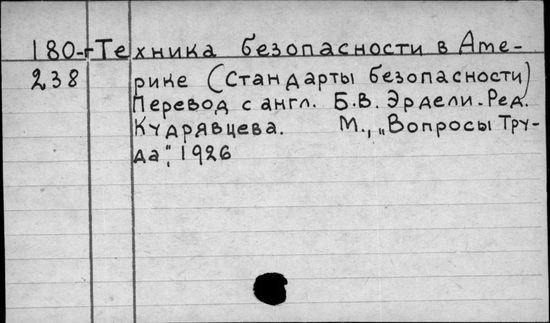 180-г Техника безопасности в Аме-
238 рике (Стандарты безопасности)
Перевод с англ. Б.В. Эрдели. Ред.
Кудрявцева. М., „Вопросы Тру-
да", 1926